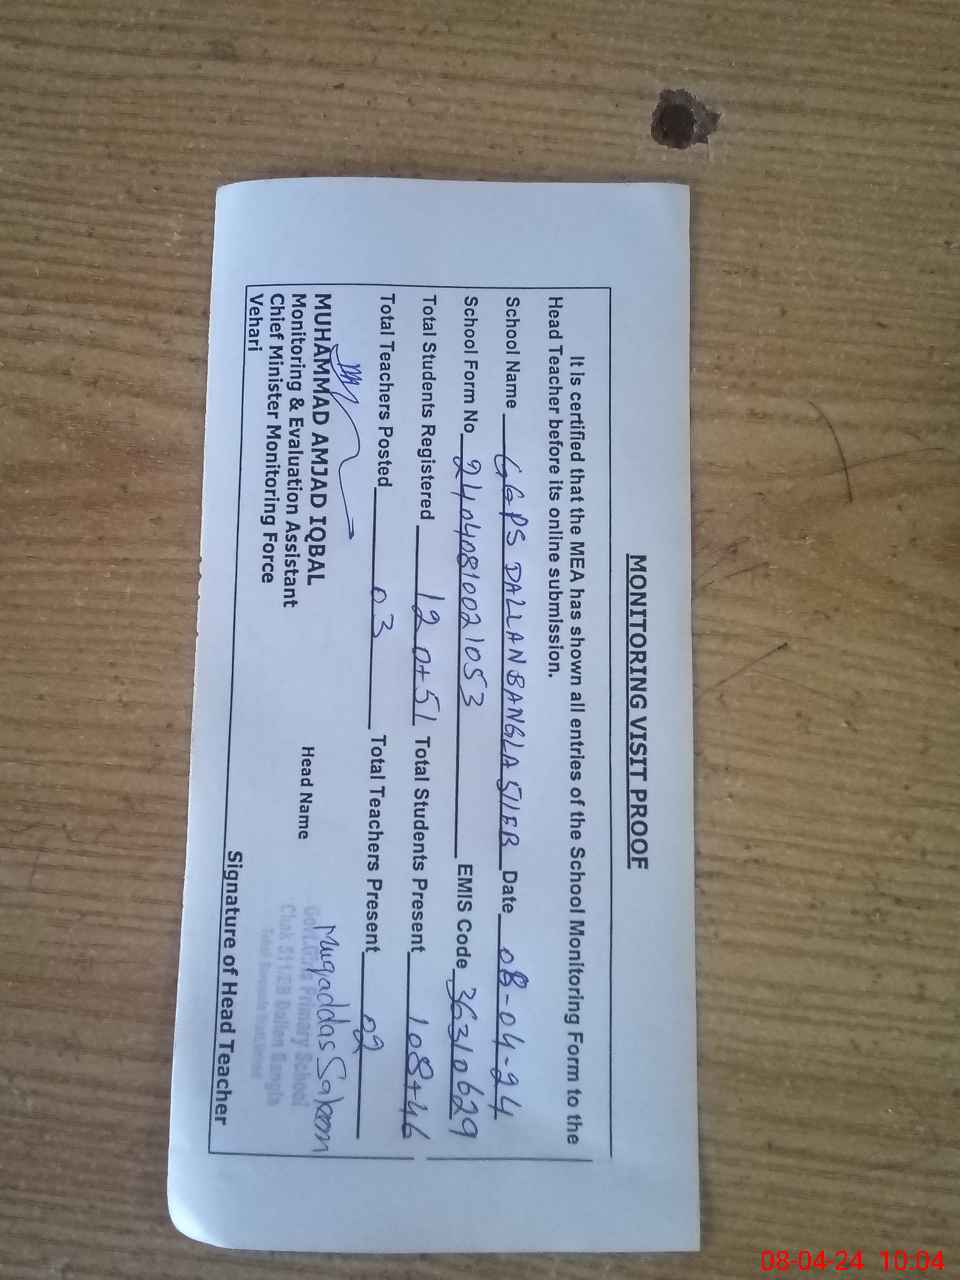 MONITORING VISIT PROOF
It is certified that the MEA has shown all entries of the School Monitoring Form to the
Head Teacher before its online submission.
School Name GGPS DALLAN BANGLA 511EB Date 08-04-24
School Form No 24040810021053 EMIS Code 36310629
Total Students Registered 120+51 Total Students Present 108+46
Total Teachers Posted 03 Total Teachers Present 02
MUHAMMAD AMJAD IQBAL
Monitoring & Evaluation Assistant
Chief Minister Monitoring Force
Vehari
Head Name Muqaddas
Govt. Girls Primary School
Chak 511/EB Dallan Bangla
Signature of Head Teacher
08-04-24 10:04